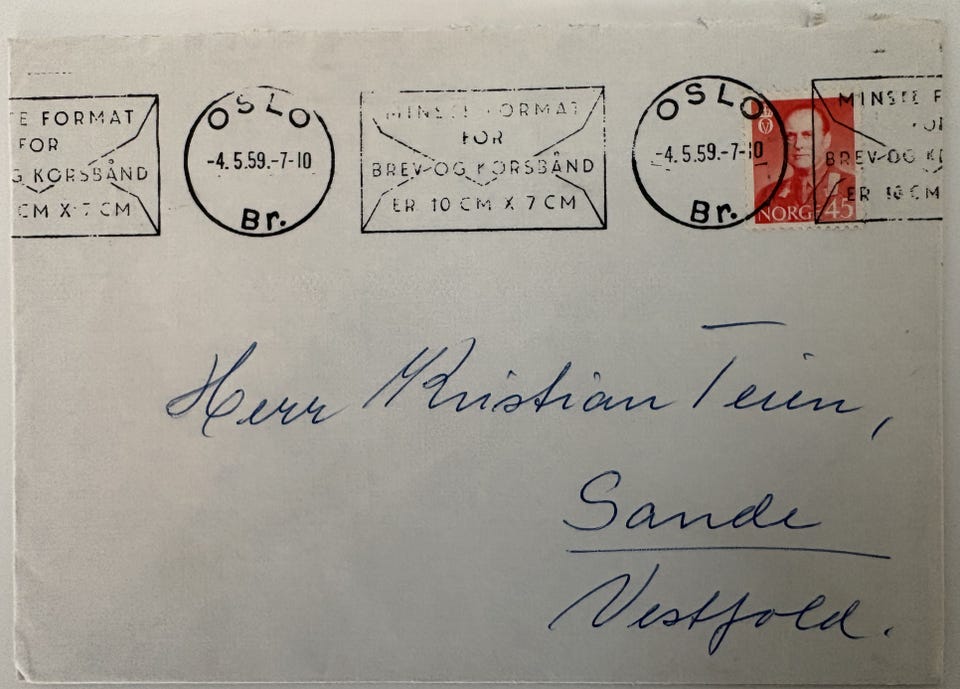 E FORMAT
FOR
G KORSBÅND
CM X 7 CM
OSLO
-4.5.59.-7-10
Br.
MINSTE FORMAT
FOR
BREV OG KORSBÅND
ER 10 CM X 7 CM
OSLO
-4.5.59.-7-10
Br.
NORG 45
MINSTE F
FOR
BREV OG KO
ER 10 CM
Herr Kristian Teien,
Sande
Vestfold.